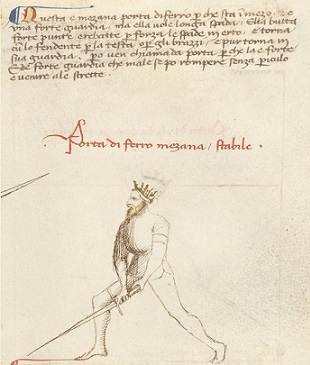 Questa e mezana porta di ferro p che sta in mezo. e
una forte guardia. ma ella vole longa spada. Ella butta
forte punte e rebatte p forza le spade in erto. e torna
cu lo fendente p la testa o p gli brazzi. e pur torna in
sua guardia. po ven chiamada porta. p che la e forte
E de forte guardia che male se po rompere senza piculo
e venire ale strette.
Porta di ferro mezana / stabile.